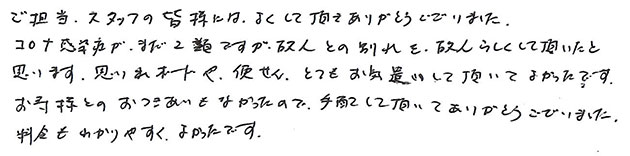 ご担当、スタッフの皆様には、よくして頂きありがとうございました。
コロナ感染症が、まだ2類ですが、故人との別れを、故人らしくして頂いたと
思います。思い出ボードや、便せん、とてもお気遣いして頂いてよかったです。
お寺様とのおつきあいもなかったので、手配して頂いてありがとうございました。
料金もわかりやすく、よかったです。